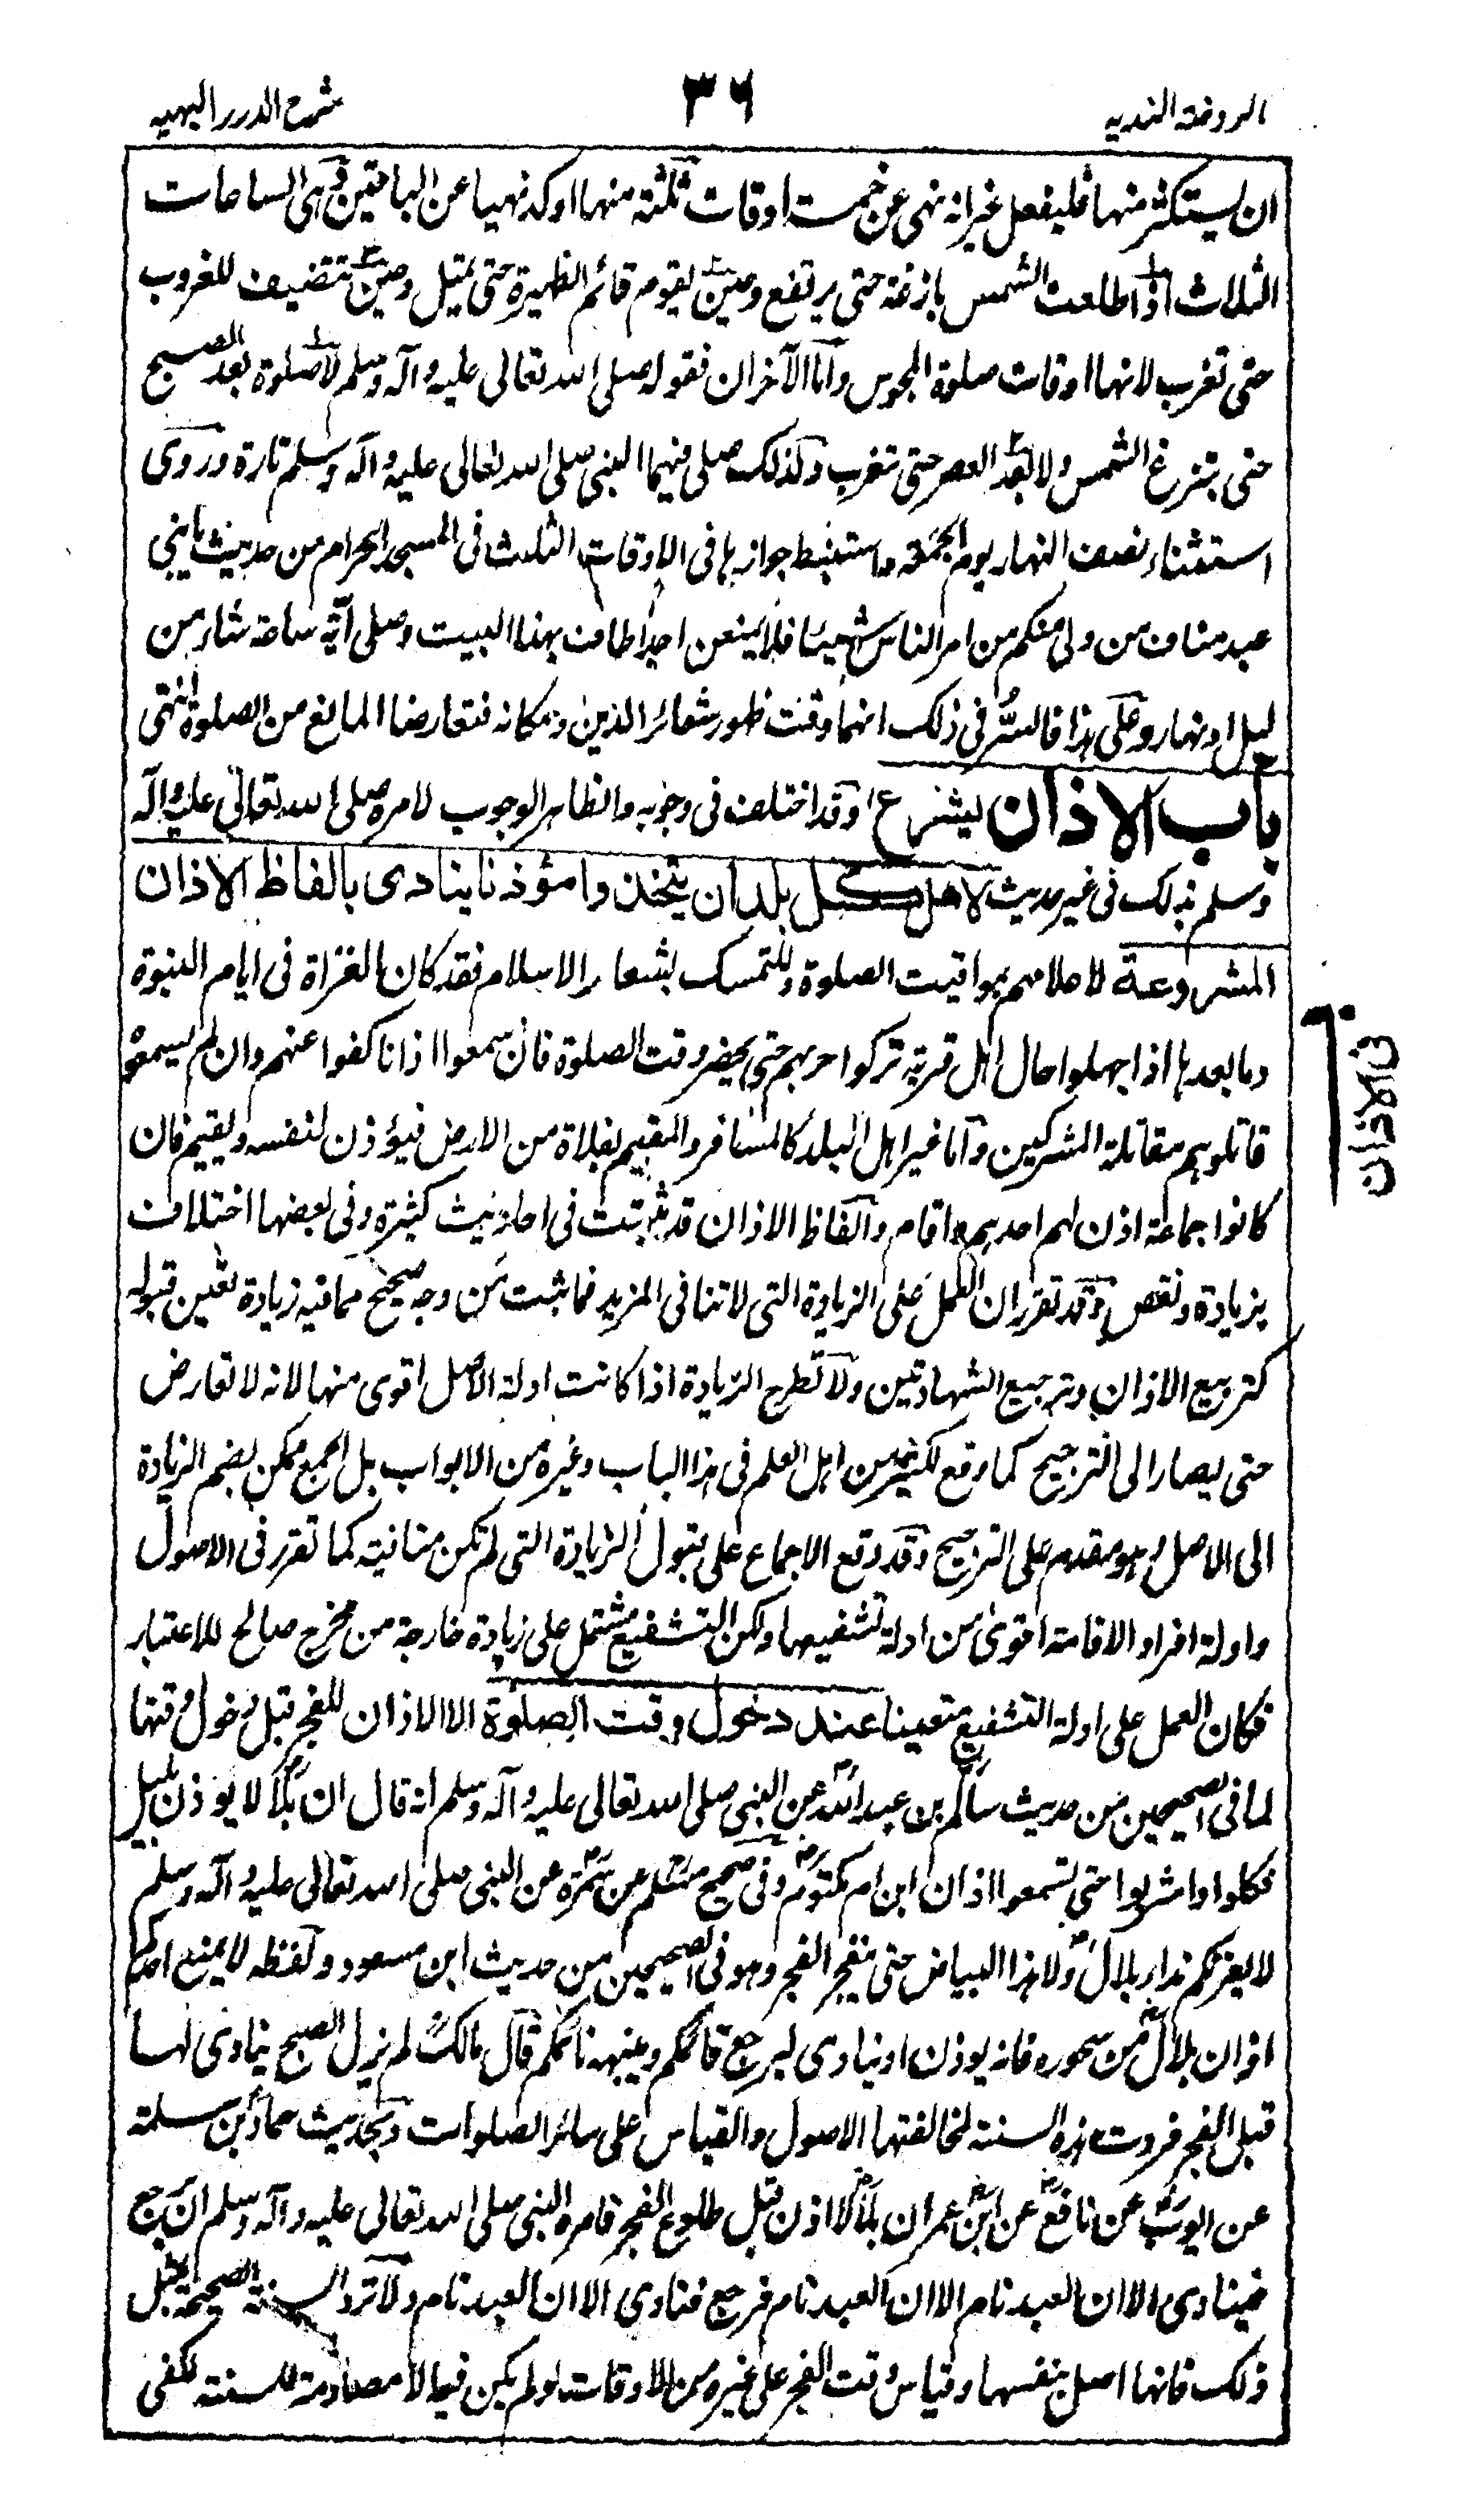 الروضة الندية
٣٦
شرح الدرر البهية
ان يستكثر منها فليفعل غير انه نهى عن خمسة اوقات ثلثة منها اوكد نهيا عن الباقيين وهى الساعات
الثلاث اذا طلعت الشمس بازغة حتى يرتفع وحين يقوم قائم الظهيرة حتى تميل وحين تتضيف للغروب
حتى تغرب لانها اوقات صلوة المجوس وأما الآخران فقوله صلى الله تعالى عليه وآله وسلم لا صلوة بعد الصبح
حتى تبزغ الشمس ولا بعد العصر حتى تغرب ولذلك صلى فيهما النبي صلى الله تعالى عليه وآله وسلم تارة وروى
استثناء نصف النهار يوم الجمعة واستنبط جوازها فى الاوقات الثلث فى المسجد الحرام من حديث يا بني
عبد مناف من ولى منكم من امر الناس شيئا فلا يمنعن احدا طاف بهذا البيت وصلى أية ساعة شاء من
ليل او نهار وعلى هذا فالسر فى ذلك انهما وقت ظهور شعائر الدين ومكانه فتعارضا المانع من الصلوة انتهى
باب الاذان يشرع وقد اختلف فى وجوبه والظاهر الوجوب لامره صلى الله تعالى عليه وآله
وسلم بذلك فى غير حديث لاهل كل بلد ان يتخذوا مؤذنا ينادى بالفاظ الاذان
المشروعة لاعلامهم بمواقيت الصلوة وللتمسك بشعار الاسلام فقد كان الغزاة فى ايام النبوة
وما بعدها اذا جهلوا حال اهل قرية تركوا حربهم حتى يحضر وقت الصلوة فان سمعوا اذانا كفوا عنهم وان لم يسمعوا
قاتلوهم مقاتلة المشركين وأما غير اهل البلد كالمسافر والمقيم بفلاة من الارض فيؤذن لنفسه ويقيم فان
كانوا جماعة اذن لهم احدهم واقام والفاظ الاذان قد ثبتت فى احاديث كثيرة وفى بعضها اختلاف
بزيادة ونقص وقد تقرر ان العمل على الزيادة التى لا تنافى المزيد فما ثبت من وجه صحيح مما فيه زيادة تعين قبوله
كتربيع الاذان وترجيع الشهادتين ولا تطرح الزيادة اذا كانت ادلة الاصل اقوى منها لانه لا تعارض
حتى يصار الى الترجيح كما وقع لكثير من اهل العلم فى هذا الباب وغيره من الابواب بل الجمع ممكن بضم الزيادة
الى الاصل وهو مقدم على الترجيح وقد وقع الاجماع على قبول الزيادة التى لم تكن منافية كما تقرر فى الاصول
وادلة افراد الاقامة اقوى من ادلة تشفيعها ولكن التشفيع مشتمل على زيادة خارجة من مخرج صالح للاعتبار
فكان العمل على ادلة التشفيع متعينا عند دخول وقت الصلوة الا الاذان للفجر قبل دخول وقتها
لما فى الصحيحين من حديث سالم بن عبد الله عن النبي صلى الله تعالى عليه وآله وسلم انه قال ان بلالا يؤذن بليل
فكلوا واشربوا حتى تسمعوا اذان ابن ام مكتوم وفى صحيح مسلم عن سمرة عن النبي صلى الله تعالى عليه وآله وسلم
لا يغركم نداء بلال ولا هذا البياض حتى ينفجر الفجر وهو فى الصحيحين من حديث ابن مسعود ولفظه لا يمنع احدكم
اذان بلال من سحوره فانه يؤذن او ينادى ليرجع قائمكم وينبه نائمكم قال مالك لم يزل الصبح ينادى لها
قبل الفجر فردت هذه السنة لمخالفتها الاصول والقياس على سائر الصلوات وبحديث حماد بن سلمة
عن ايوب عن نافع عن ابن عمر ان بلالا اذن قبل طلوع الفجر فامره النبي صلى الله تعالى عليه وآله وسلم ان يرجع
فينادى الا ان العبد نام الا ان العبد نام فرجع فنادى الا ان العبد نام ولا ترد السنة الصحيحة بمثل
ذلك فانها اصل بنفسها وقياس وقت الفجر على غيره من الاوقات لو لم يكن فيه الا مصادمة للسنة لكفى